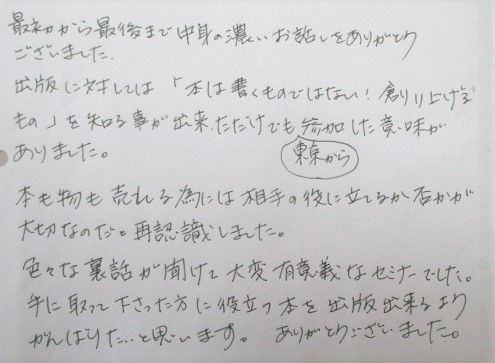 最初から最後まで中身の濃いお話しをありがとう
ございました.
出版に対しては「本は書くものではない！創り上げる
もの」を知る事が出来ただけでも参加した意味が
ありました。
東京から
本も物も売れる為には相手の役に立てるか否かが
大切なのだと再認識しました。
色々な裏話が聞けて大変有意義なセミナーでした。
手に取って下さった方に役立つ本を出版出来るよう
がんばりた…と思います。 ありがとうございました。